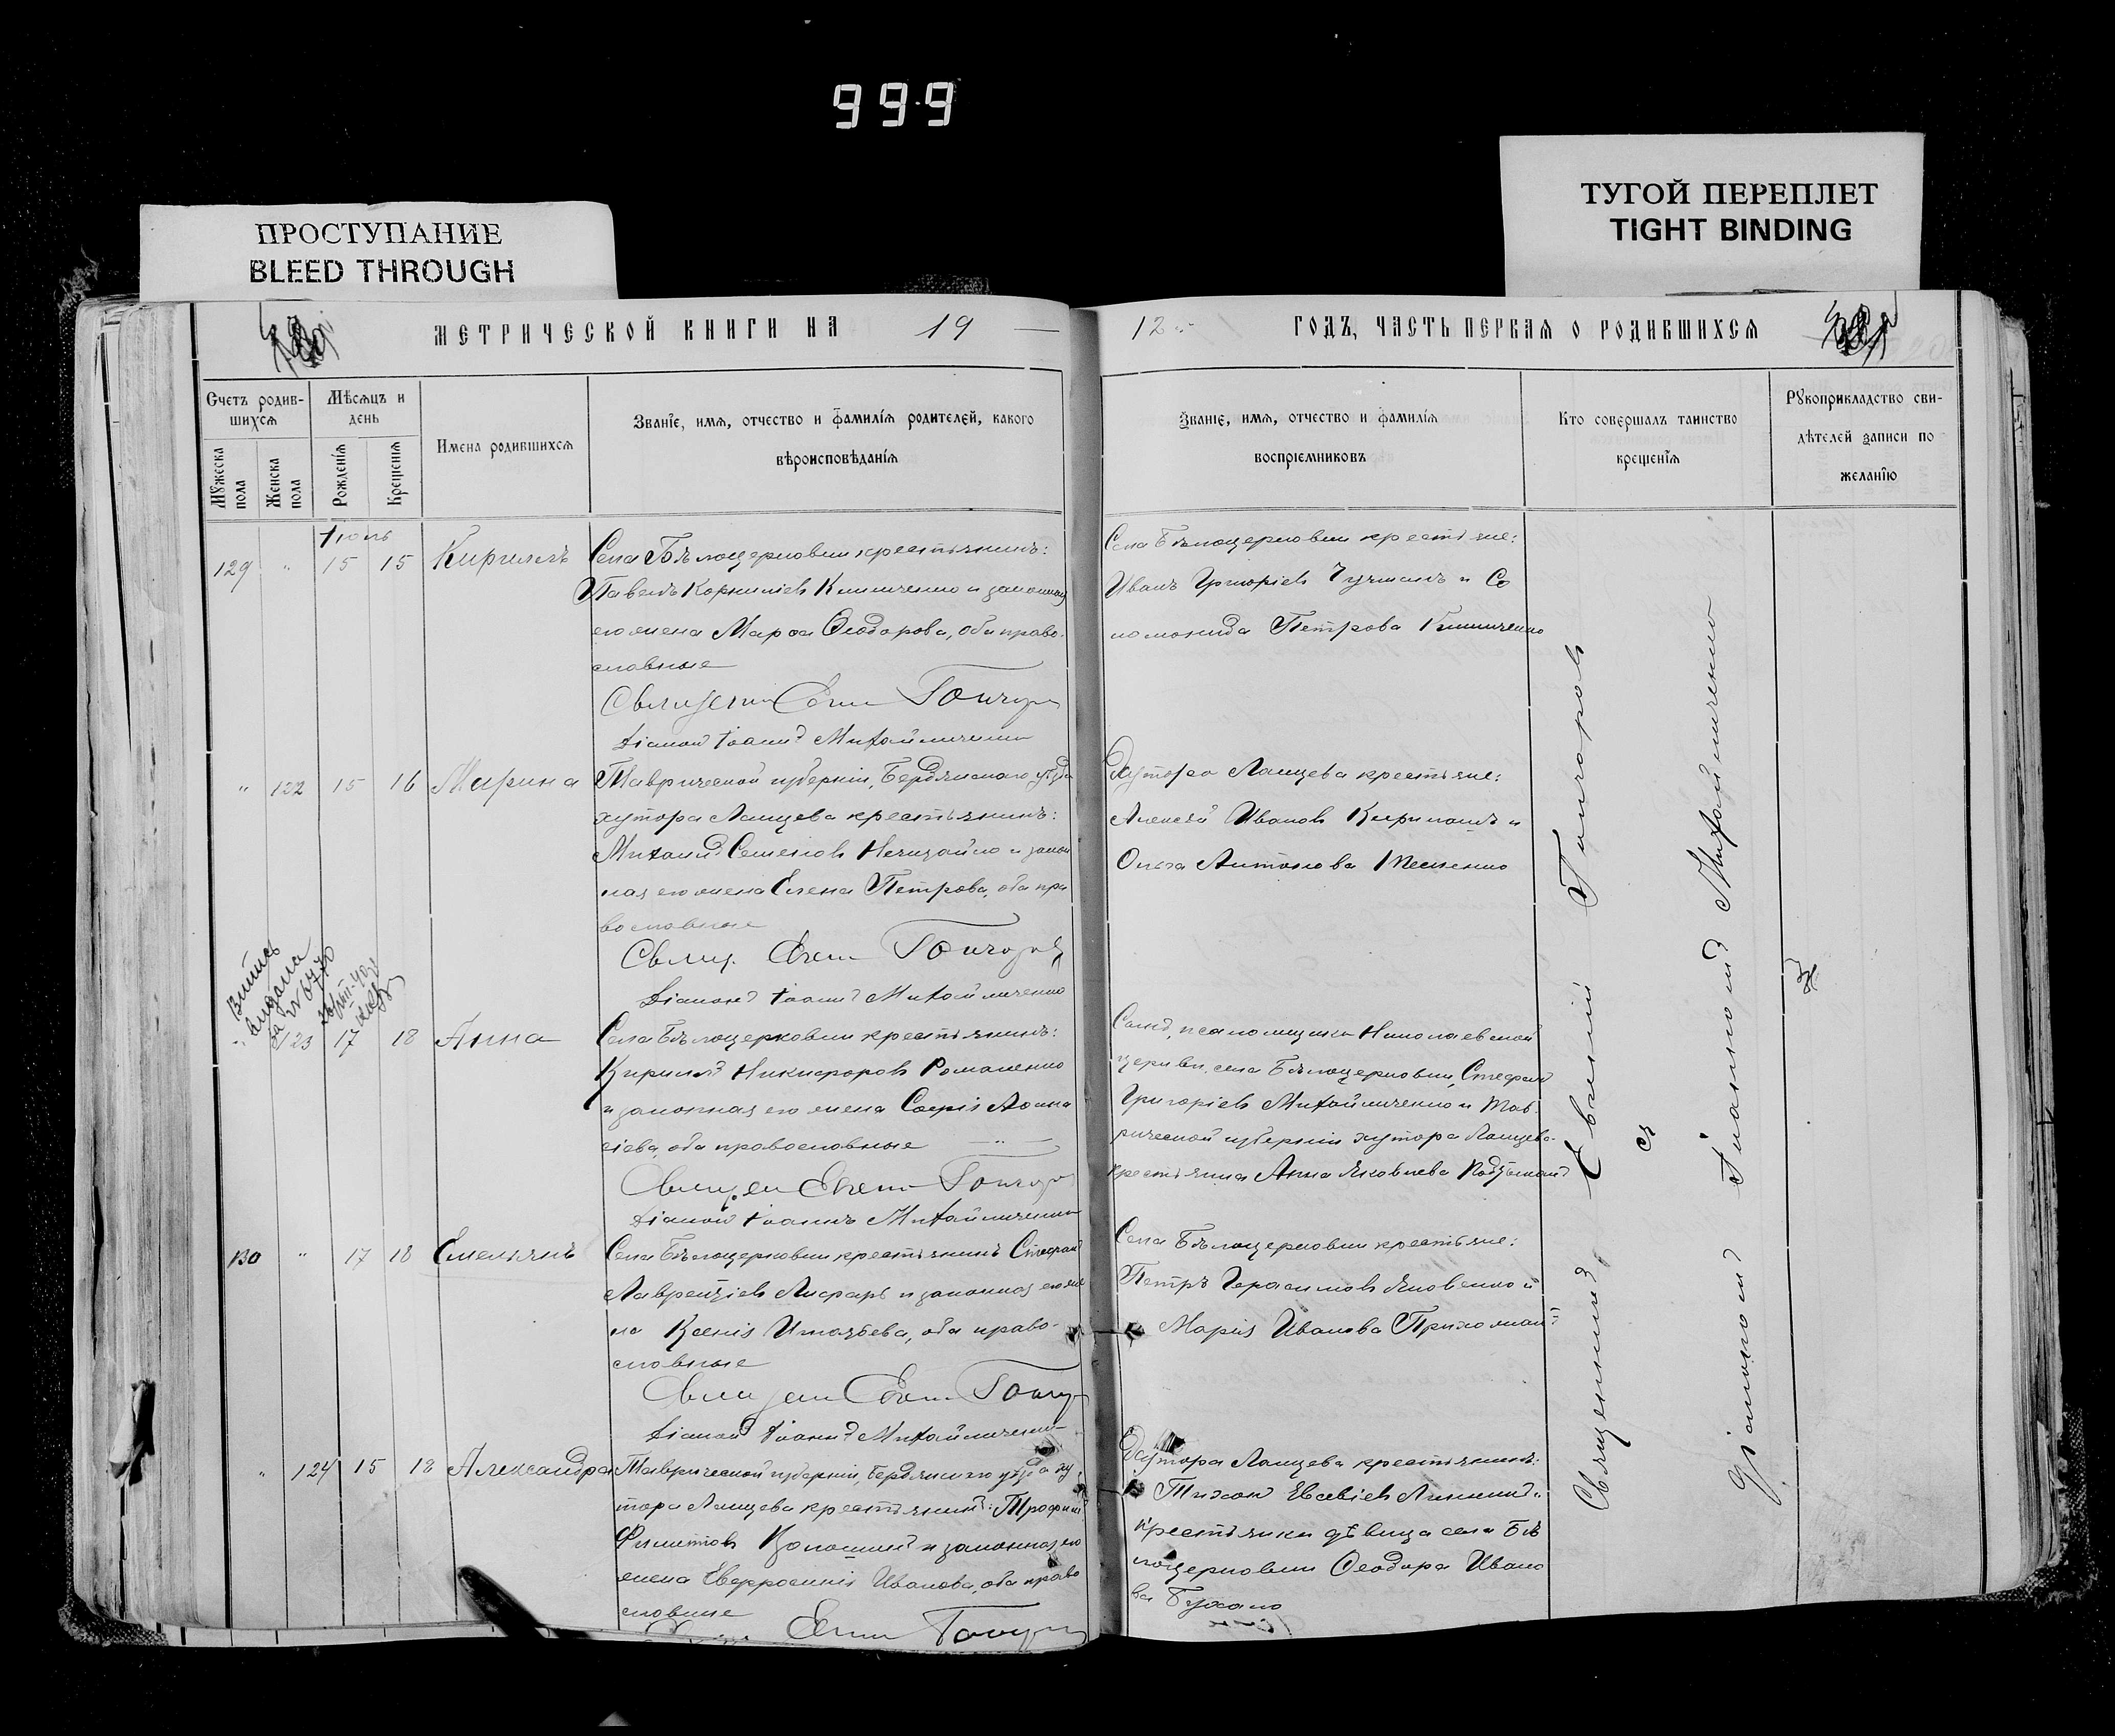 999
ПРОСТУПАНИЕ
BLEED THROUGH
ТУГОЙ ПЕРЕПЛЕТ
TIGHT BINDING
МЕТРИЧЕСКОЙ КНИГИ НА 19
12 ГОДЪ, ЧАСТЬ ПЕРВАЯ О РОДИВШИХСЯ
Счетъ родив-
шихся
Мѣсяцъ и
день
Мужеска
пола
Женска
пола
Рожденія
Крещенія
Имена родившихся
Званіе, имя, отчество и фамилія родителей, какого
вѣроисповѣданія
Званіе, имя, отчество и фамилія
воспріемниковъ
Кто совершалъ таинство
крещенія
Рукоприкладство сви-
дѣтелей записи по
желанію
129 " 15 15 Кириллъ
Села Бѣлоцерковки крестьянинъ:
Павелъ Корнилієв Клименко и законная
его жена Марфа Ѳеодорова, оба право-
славные
Діаконъ Іоаннъ Михайличенко
Села Бѣлоцерковки крестьяне:
Иванъ Григоріевъ и Со
ломонида Петрова Клименко
" 122 15 16 Марина
Таврической губерніи, Бердянскаго уѣзда
хутора Ланцева крестьянинъ:
Михаилъ Семеновъ и закон
ная его жена Елена Петрова, оба пра
вославные
Діаконъ Іоаннъ Михайличенко
Хутора Ланцева крестьяне:
Алексѣй Ивановъ и
Ольга Антонова
выдана
за № 6770
" 123 17 18 Анна
Села Бѣлоцерковки крестьянинъ:
Кириллъ Никифоровъ Романенко
и законная его жена Софія Аѳана
сіева, оба православные
Діаконъ Іоаннъ Михайличенко
псаломщика Николаевской
церкви, села Бѣлоцерковки, Стефанъ
Григоріевъ Михайличенко и Тав-
рической губерніи хутора Ланцева
крестьянка Анна Яковлева
130 " 17 18 Емельянъ
Села Бѣлоцерковки крестьянинъ Стефанъ
Лаврентіевъ и законная его же
на Ксенія Игнатьева, оба право-
славные
Діаконъ Іоаннъ Михайличенко
Села Бѣлоцерковки крестьяне:
Петръ Герасимовъ Яковенко и
Марія Иванова
" 124 15 18 Александра
Таврической губерніи, Бердянскаго уѣзда ху
тора Ланцева крестьянинъ: Трофимъ
Филиповъ Волошинъ и законная его
жена Евфросинія Иванова, оба право
славные
Хутора Ланцева крестьянинъ:
Тихонъ Евсевіевъ
крестьянка дѣвица села Бѣ
лоцерковки Ѳеодора Ивано
ва
Священникъ Евгеній Гончаровъ
съ
Діакономъ Іоанномъ Михайличенко